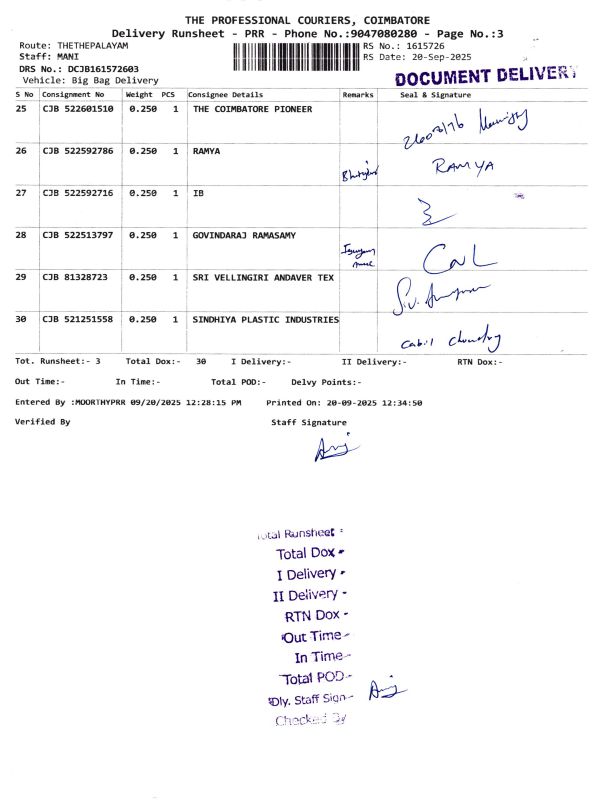 THE PROFESSIONAL COURIERS, COIMBATORE
Delivery Runsheet - PRR - Phone No.:9047080280 - Page No.:3
Route: THETHEPALAYAM RS No.: 1615726
Staff: MANI RS Date: 20-Sep-2025
DRS No.: DCJB161572603
Vehicle: Big Bag Delivery
DOCUMENT DELIVERY
S No Consignment No Weight PCS Consignee Details Remarks Seal & Signature
25 CJB 522601510 0.250 1 THE COIMBATORE PIONEER
26 CJB 522592786 0.250 1 RAMYA RAMYA
27 CJB 522592716 0.250 1 IB
28 CJB 522513797 0.250 1 GOVINDARAJ RAMASAMY
29 CJB 81328723 0.250 1 SRI VELLINGIRI ANDAVER TEX
30 CJB 521251558 0.250 1 SINDHIYA PLASTIC INDUSTRIES
Tot. Runsheet:- 3 Total Dox:- 30 I Delivery:- II Delivery:- RTN Dox:-
Out Time:- In Time:- Total POD:- Delvy Points:-
Entered By :MOORTHYPRR 09/20/2025 12:28:15 PM Printed On: 20-09-2025 12:34:50
Verified By Staff Signature
Total Runsheet -
Total Dox -
I Delivery -
II Delivery -
RTN Dox -
Out Time -
In Time -
Total POD -
Dly. Staff Sign -
Checked By